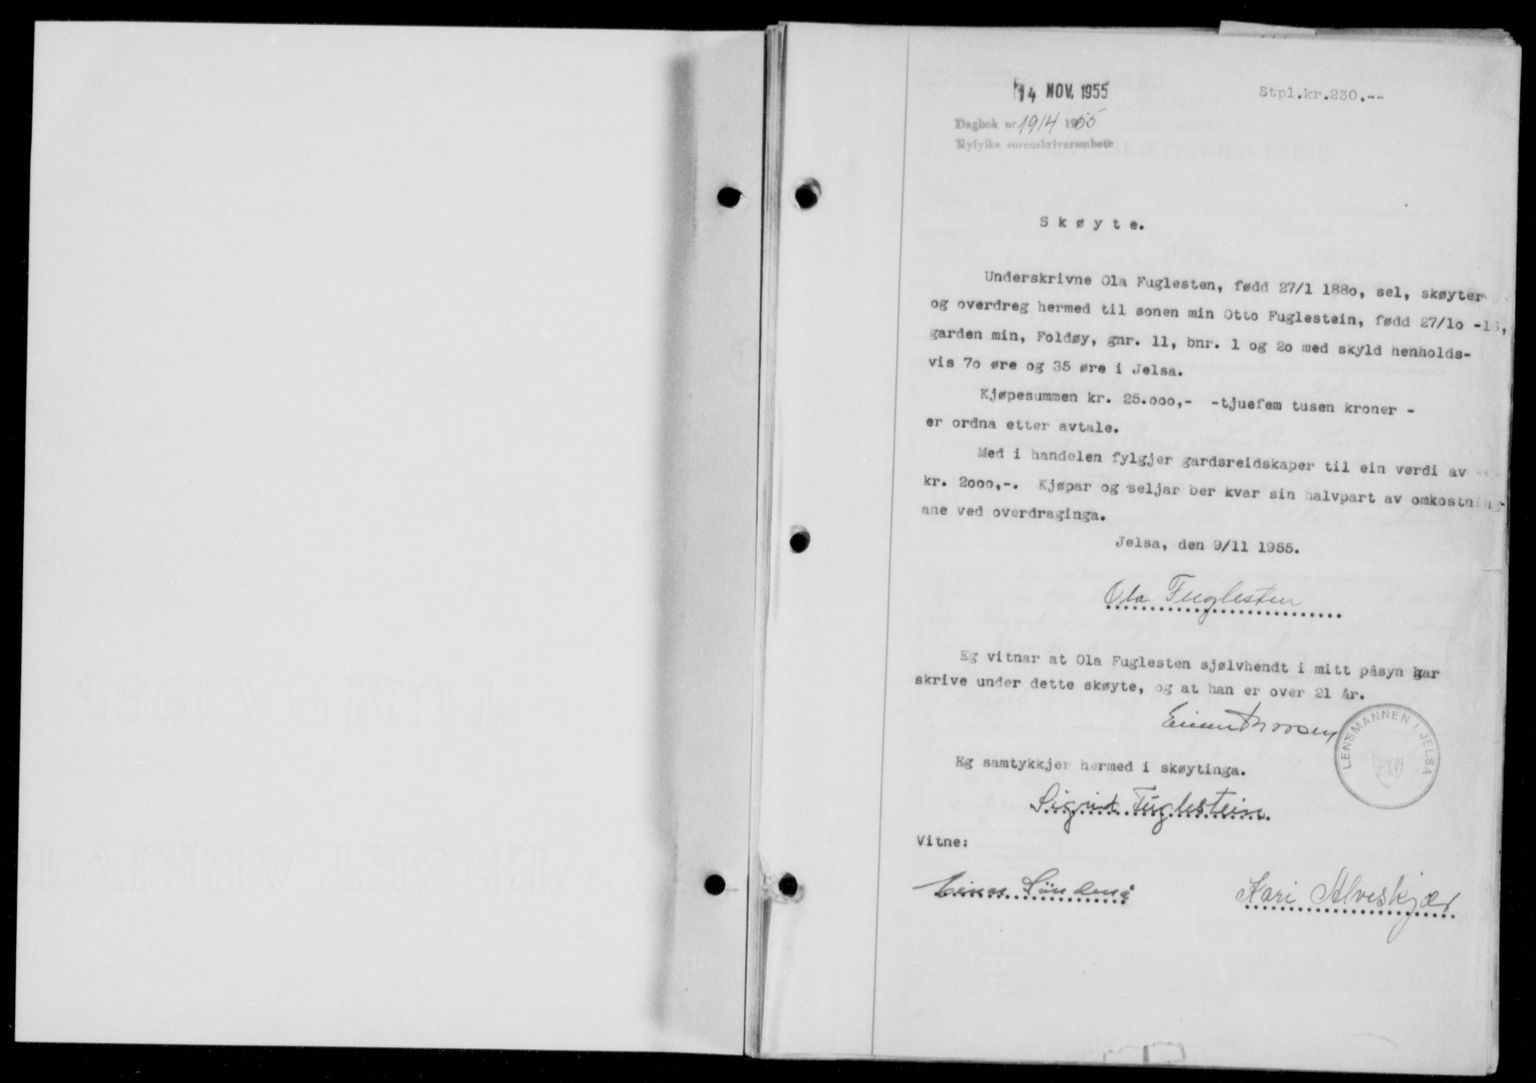 14 NOV. 1955
Stpl.kr.230.--
Dagbok nr. 1914 1955
Ryfylke sorenskrivarembete
Skøyte.
Underskrivne Ola Fuglesten, fødd 27/1 1880, sel, skøyter
og overdreg hermed til sonen min Otto Fuglestein, fødd 27/10 -16,
garden min, Foldøy, gnr. 11, bnr. 1 og 20 med skyld henholds-
vis 70 øre og 35 øre i Jelsa.
Kjøpesummen kr. 25.000,- -tjuefem tusen kroner -
er ordna etter avtale.
Med i handelen fylgjer gardsreidskaper til ein verdi av
kr. 2000,-. Kjøpar og seljar ber kvar sin halvpart av omkostning-
ane ved overdraginga.
Jelsa, den 9/11 1955.
Ola Fuglesten
Eg vitnar at Ola Fuglesten sjølvhendt i mitt påsyn har
skrive under dette skøyte, og at han er over 21 år.
LENSMANNEN I JELSA
Eg samtykkjer hermed i skøytinga.
Sigrid Fuglestein
Vitne:
Kari Alveskjær